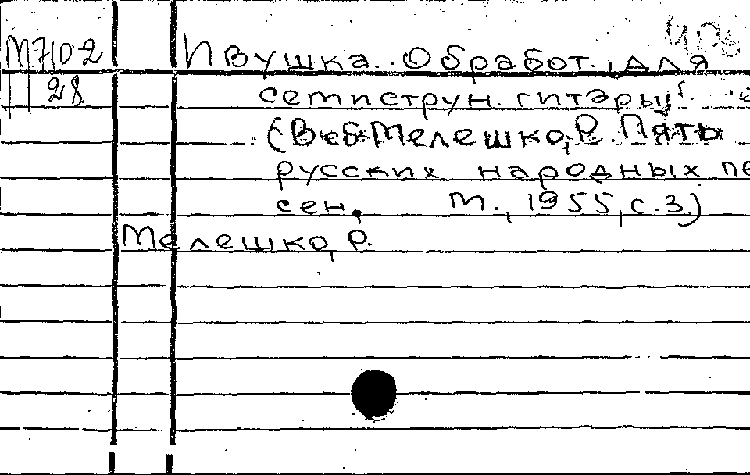 М7102 Ивушка. Обработ. для
II 28 семиструн. гитары.
(В кн: Мелешко, Р. Пять
русских народных пе
сен. М., 1955, с. 3.)
Мелешко, Р.